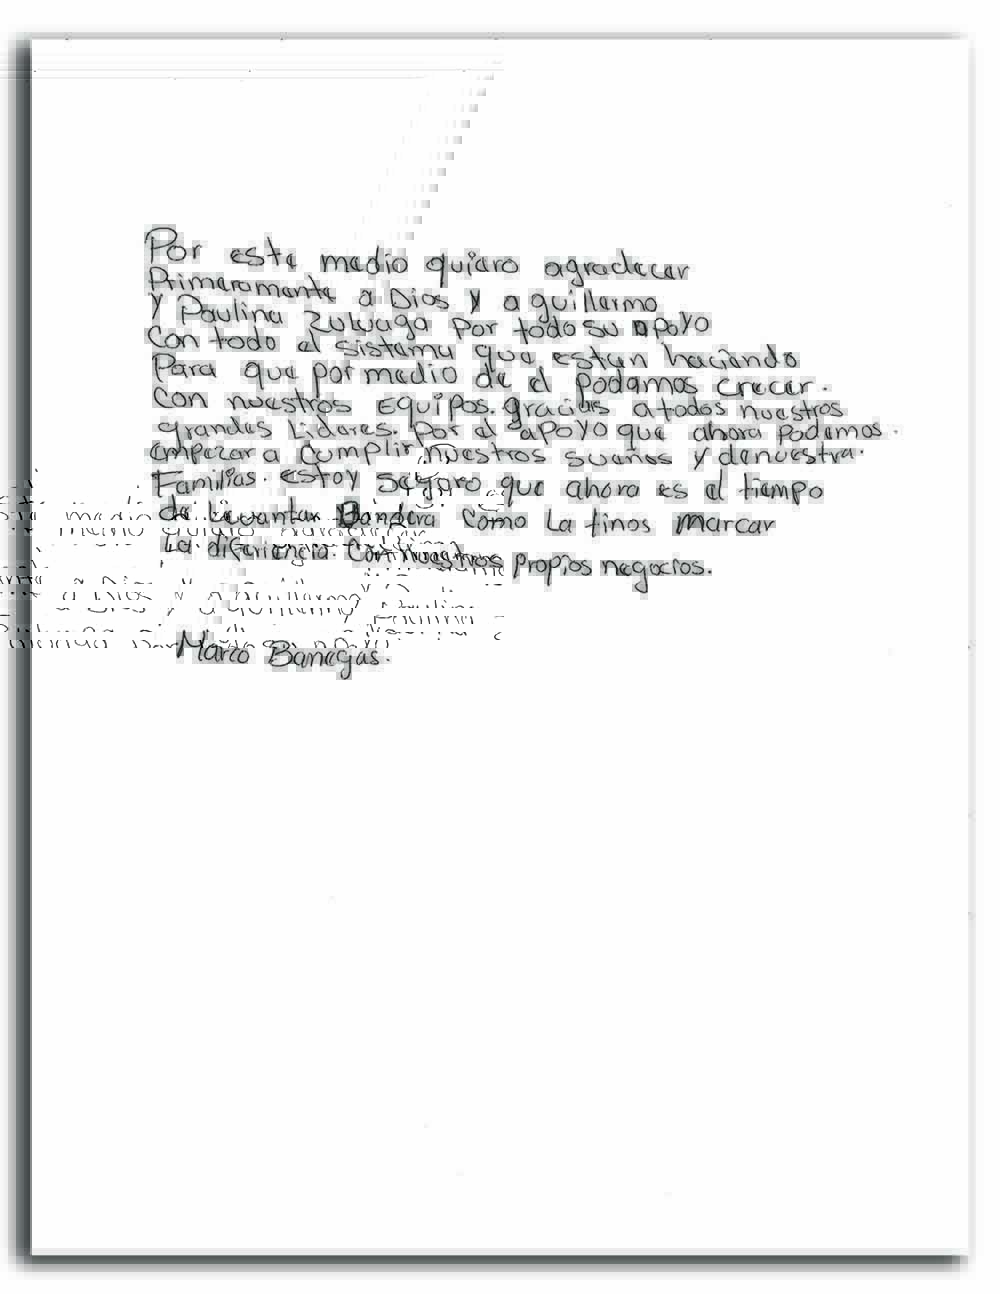 Por este medio quiero agradecer
Primeramente a Dios y a guillermo
y Paulina Zuluaga por todo su apoyo
Con todo el sistema que estan haciendo
Para que por medio de el podamos crecer.
Con nuestros equipos. gracias a todos nuestros
grandes Lideres. por el apoyo que ahora podemos.
empezar a cumplir nuestros sueños y de nuestra.
Familias. estoy seguro que ahora es el tiempo
de Levantar Bandera como La tinos Marcar
La diferiencia. Con nuestros propios negocios.
este medio quiero agradecer
a Dios y a guillermo y Paulina
Zuluaga por todo su apoyo
Marco Banegas.